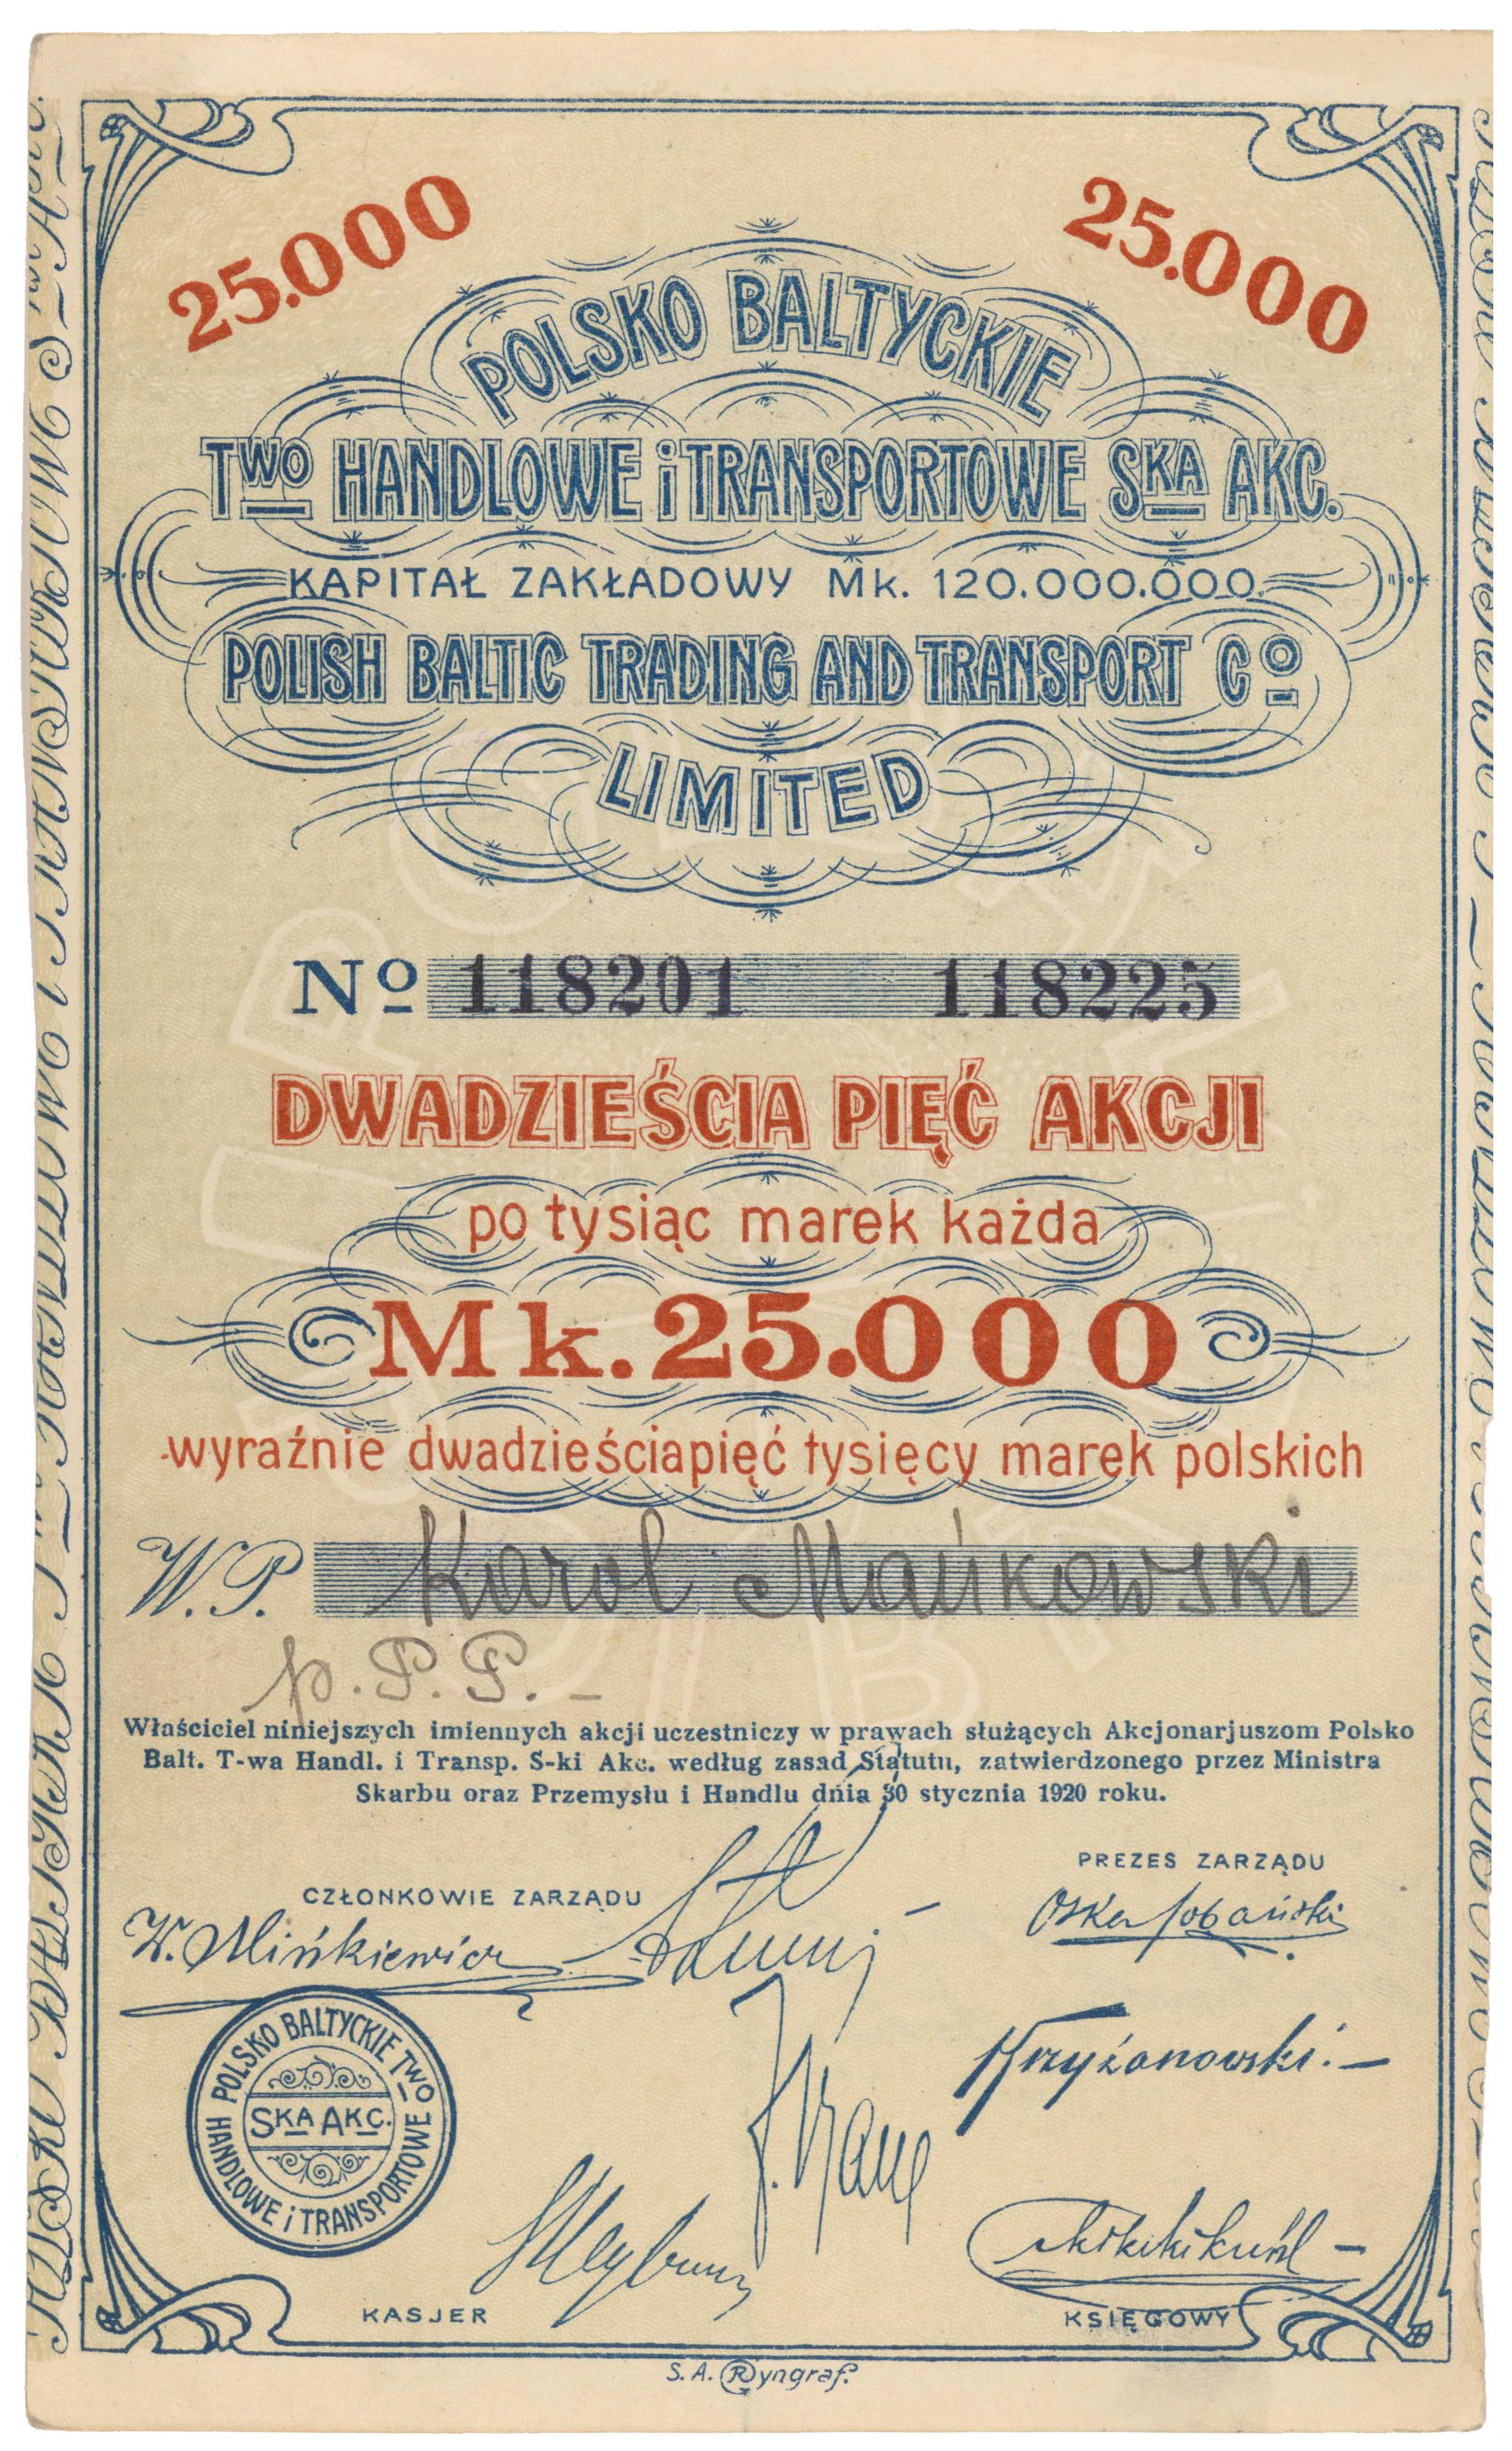 25.000
25.000
POLSKO BALTYCKIE
TWO HANDLOWE i TRANSPORTOWE SKA AKC.
KAPITAŁ ZAKŁADOWY Mk. 120.000.000.
POLISH BALTIC TRADING AND TRANSPORT CO
LIMITED
No 118201 118225
DWADZIEŚCIA PIĘĆ AKCJI
po tysiąc marek każda
Mk. 25.000
wyraźnie dwadzieściapięć tysięcy marek polskich
W.P. Karol Mańkowski
p. P. P. –
Właściciel niniejszych imiennych akcji uczestniczy w prawach służących Akcjonarjuszom Polsko
Balt. T-wa Handl. i Transp. S-ki Akc. według zasad Statutu, zatwierdzonego przez Ministra
Skarbu oraz Przemysłu i Handlu dnia 30 stycznia 1920 roku.
PREZES ZARZĄDU
CZŁONKOWIE ZARZĄDU
W. Mińkiewicz
Krzyżanowski.–
POLSKO BALTYCKIE TWO
HANDLOWE i TRANSPORTOWE
SKA AKC.
KASJER
KSIĘGOWY
S. A. Ryngraf.